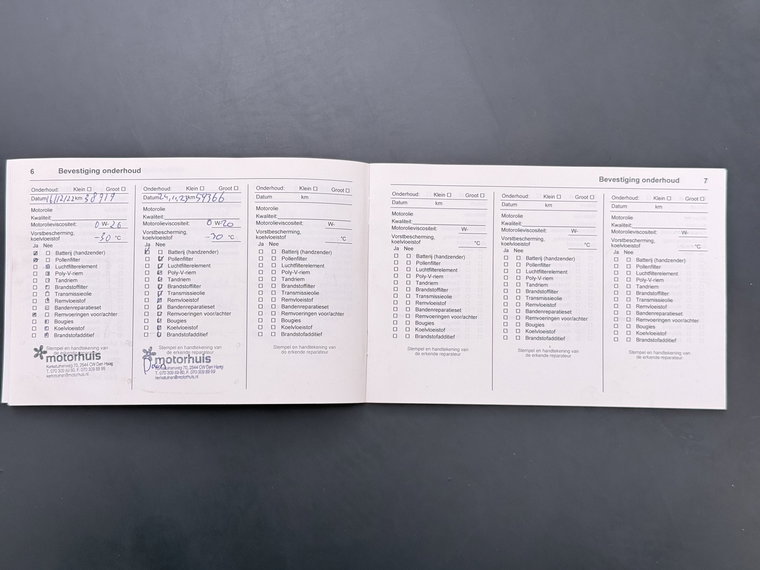 6 Bevestiging onderhoud
Onderhoud: Klein Groot
Datum 16/12/22 km 38919
Motorolie
Kwaliteit:
Motorolieviscositeit: 0 W-20
Vorstbescherming,
koelvloeistof -30 °C
Ja Nee
Batterij (handzender)
Pollenfilter
Luchtfilterelement
Poly-V-riem
Tandriem
Brandstoffilter
Transmissieolie
Remvloeistof
Bandenreparatieset
Remvoeringen voor/achter
Bougies
Koelvloeistof
Brandstofadditief
Stempel en handtekening van
de erkende reparateur
motorhuis
Kerketuinenweg 70, 2544 CW Den Haag
Onderhoud: Klein Groot
Datum km 59366
Motorolie
Kwaliteit:
Motorolieviscositeit: 0 W-20
Vorstbescherming,
koelvloeistof -30 °C
Ja Nee
Batterij (handzender)
Pollenfilter
Luchtfilterelement
Poly-V-riem
Tandriem
Brandstoffilter
Transmissieolie
Remvloeistof
Bandenreparatieset
Remvoeringen voor/achter
Bougies
Koelvloeistof
Brandstofadditief
Stempel en handtekening van
de erkende reparateur
motorhuis
70, 2544 CW Den Haag
Onderhoud: Klein Groot
Datum km
Motorolie
Kwaliteit:
Motorolieviscositeit: W-
Vorstbescherming,
koelvloeistof °C
Ja Nee
Batterij (handzender)
Pollenfilter
Luchtfilterelement
Poly-V-riem
Tandriem
Brandstoffilter
Transmissieolie
Remvloeistof
Bandenreparatieset
Remvoeringen voor/achter
Bougies
Koelvloeistof
Brandstofadditief
Stempel en handtekening van
de erkende reparateur
Bevestiging onderhoud 7
Onderhoud: Klein Groot
Datum km
Motorolie
Kwaliteit:
Motorolieviscositeit: W-
Vorstbescherming,
koelvloeistof °C
Ja Nee
Batterij (handzender)
Pollenfilter
Luchtfilterelement
Poly-V-riem
Tandriem
Brandstoffilter
Transmissieolie
Remvloeistof
Bandenreparatieset
Remvoeringen voor/achter
Bougies
Koelvloeistof
Brandstofadditief
Stempel en handtekening van
de erkende reparateur
Onderhoud: Klein Groot
Datum km
Motorolie
Kwaliteit:
Motorolieviscositeit: W-
Vorstbescherming,
koelvloeistof °C
Ja Nee
Batterij (handzender)
Pollenfilter
Luchtfilterelement
Poly-V-riem
Tandriem
Brandstoffilter
Transmissieolie
Remvloeistof
Bandenreparatieset
Remvoeringen voor/achter
Bougies
Koelvloeistof
Brandstofadditief
Stempel en handtekening van
de erkende reparateur
Onderhoud: Klein Groot
Datum km
Motorolie
Kwaliteit:
Motorolieviscositeit: W-
Vorstbescherming,
koelvloeistof °C
Ja Nee
Batterij (handzender)
Pollenfilter
Luchtfilterelement
Poly-V-riem
Tandriem
Brandstoffilter
Transmissieolie
Remvloeistof
Bandenreparatieset
Remvoeringen voor/achter
Bougies
Koelvloeistof
Brandstofadditief
Stempel en handtekening van
de erkende reparateur